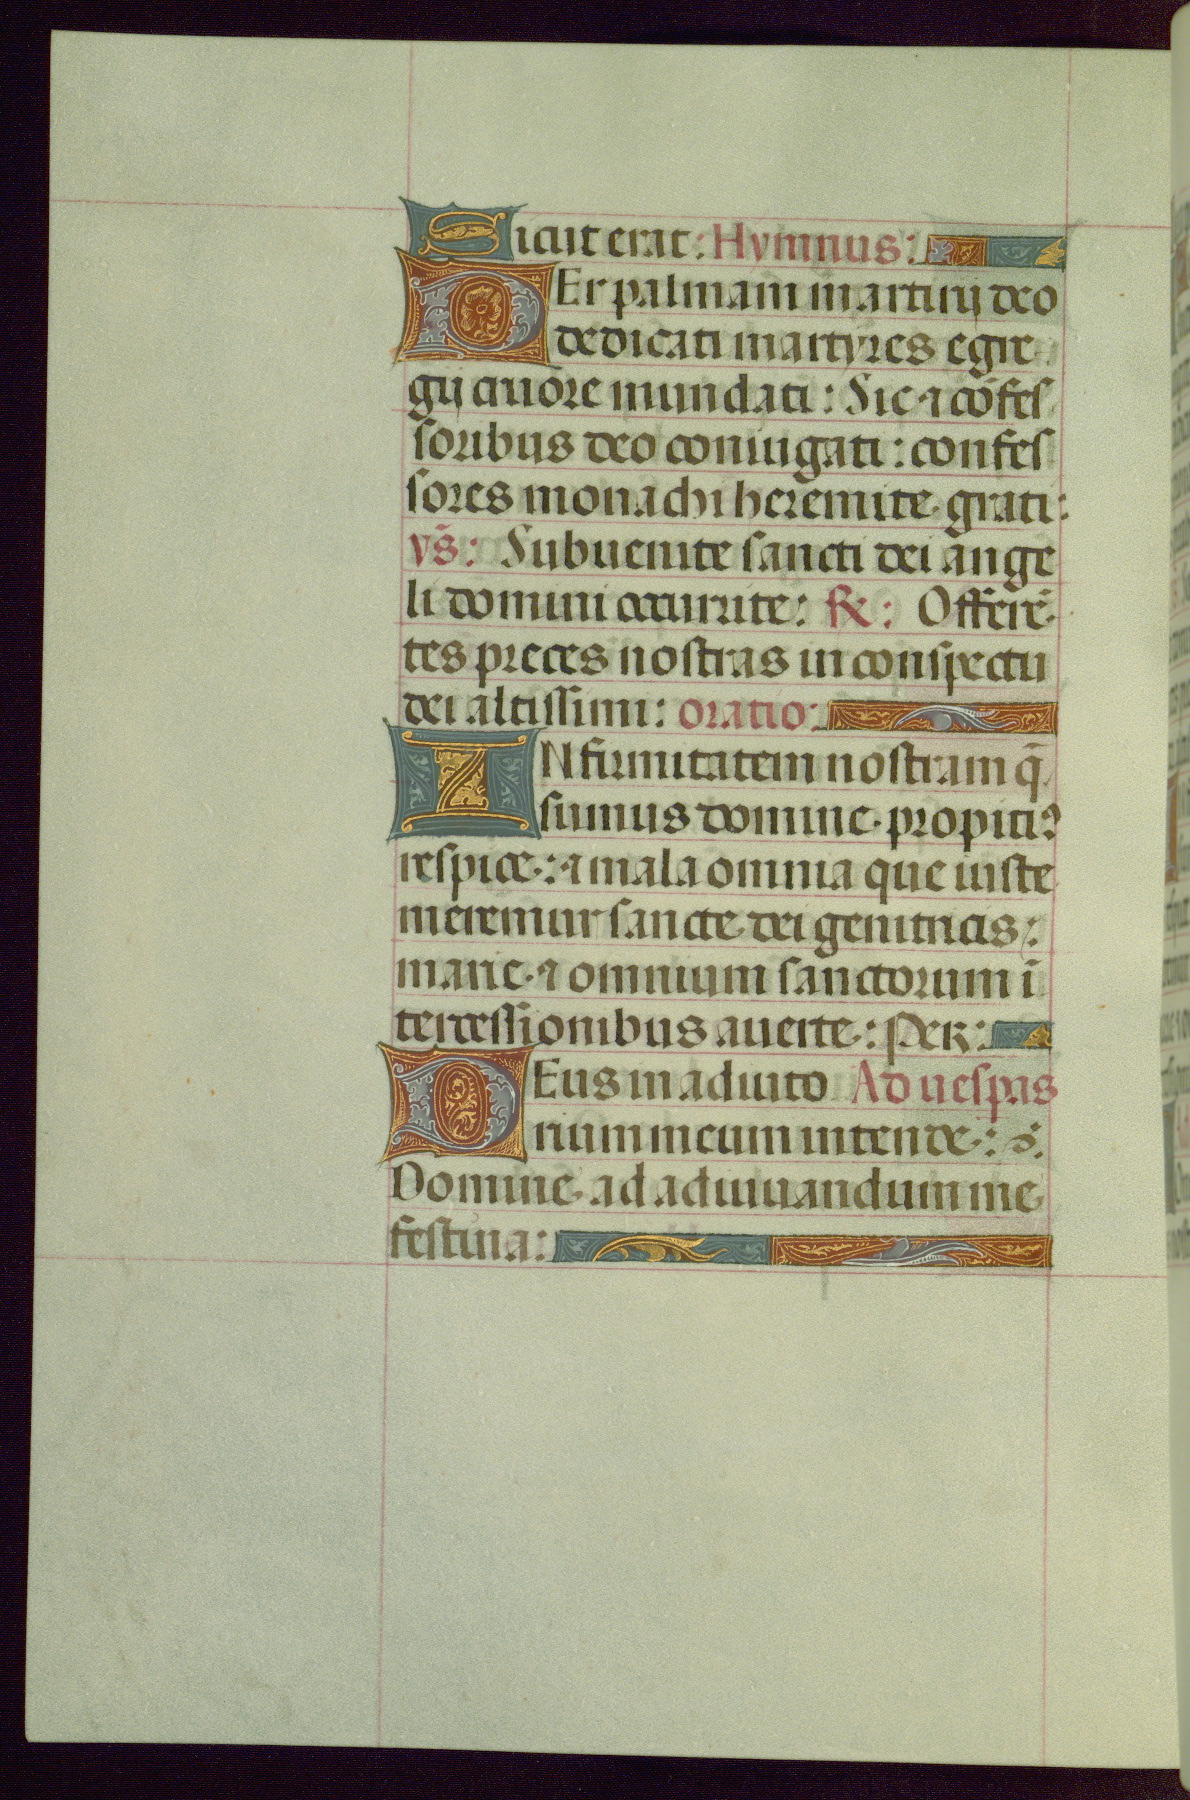 Sicut erat: Hymnus:
PEr palmam martirij deo
dedicati martyres egre
gij cruore mundati: Sic ⁊ cōfes
soribus deo coniugati: confes
sores monachi heremite grati:
vs̄: Subuenite sancti dei ange
li domini occurrite: ℟: Offerē
tes preces nostras in conspectu
dei altissimi: oratio:
INfirmitatem nostram q̄
sumus domine. propiti9
respice: ⁊ mala omnia que iuste
meremur sancte dei genitricis:
marie. ⁊ omnium sanctorum ī
tercessionibus auerte: Per:
DEus in adiuto Ad uespas
rium meum intende:
Domine ad adiuuandum me
festina: